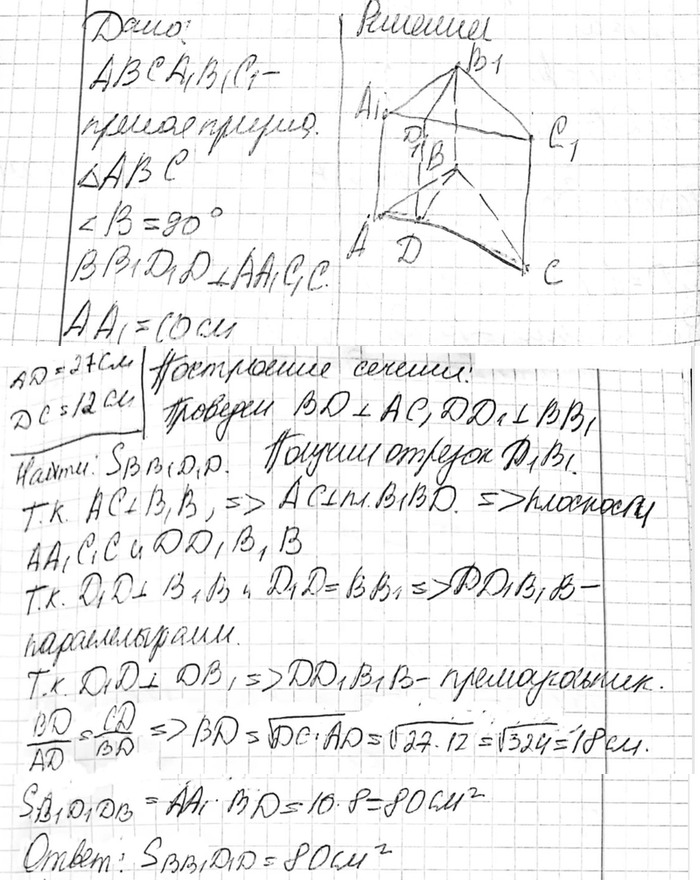 Дано:
ABCA₁B₁C₁ –
прямая призма.
△ABC
∠B = 90°
BB₁D₁D ⊥ AA₁C₁C.
AA₁ = 10 см
AD = 27 см
DC = 12 см
Найти: S BB₁D₁D.
Решение
B₁
A₁
C₁
D₁
B
A
D
C
Построение сечения:
Проведем BD ⊥ AC, DD₁ ⊥ BB₁
Получим отрезок D₁B₁.
Т.к. AC ⊥ B₁B, => AC ⊥ пл. B₁BD. => плоскости
AA₁C₁C и DD₁B₁B
Т.к. D₁D ⊥ B₁B и D₁D = BB₁ => DD₁B₁B –
параллелограмм.
Т.к. D₁D ⊥ DB, => DD₁B₁B – прямоугольник.
BD/AD = CD/BD => BD = √DC·AD = √27·12 = √324 = 18 см.
S B₁D₁DB = AA₁ · BD = 10·8 = 80 см²
Ответ: S BB₁D₁D = 80 см²